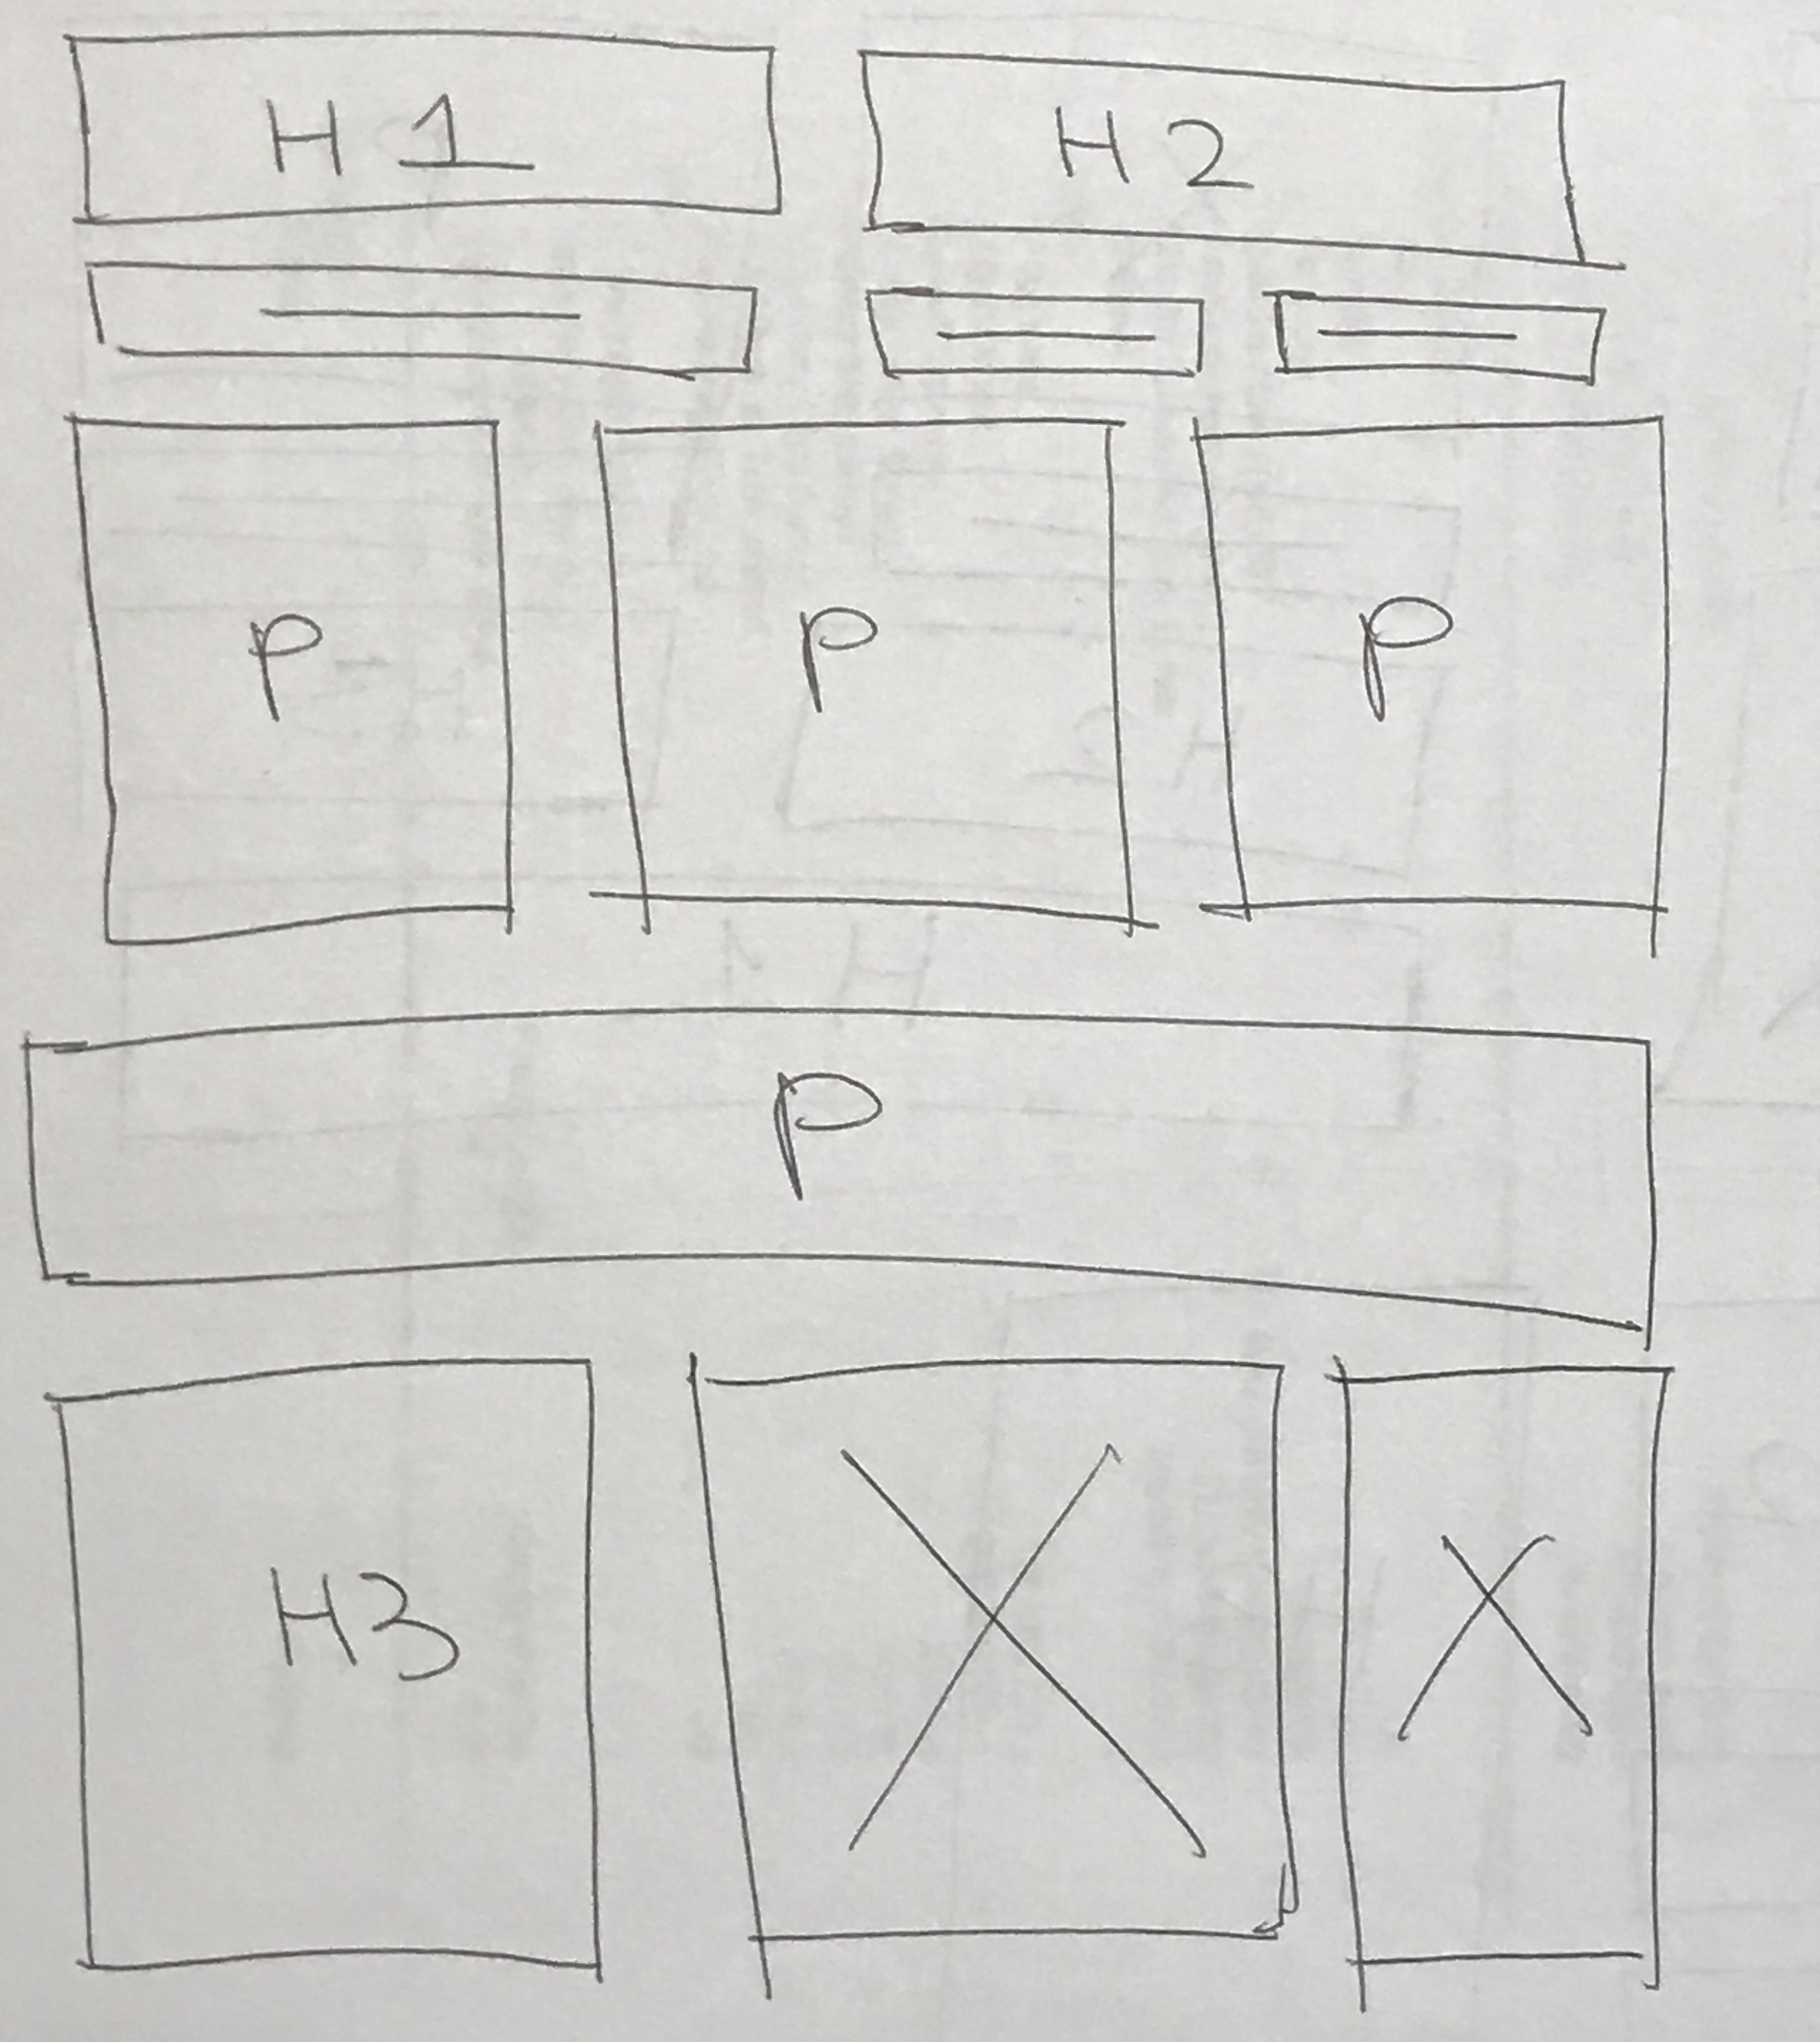 H1 H2
P P P
P
H3